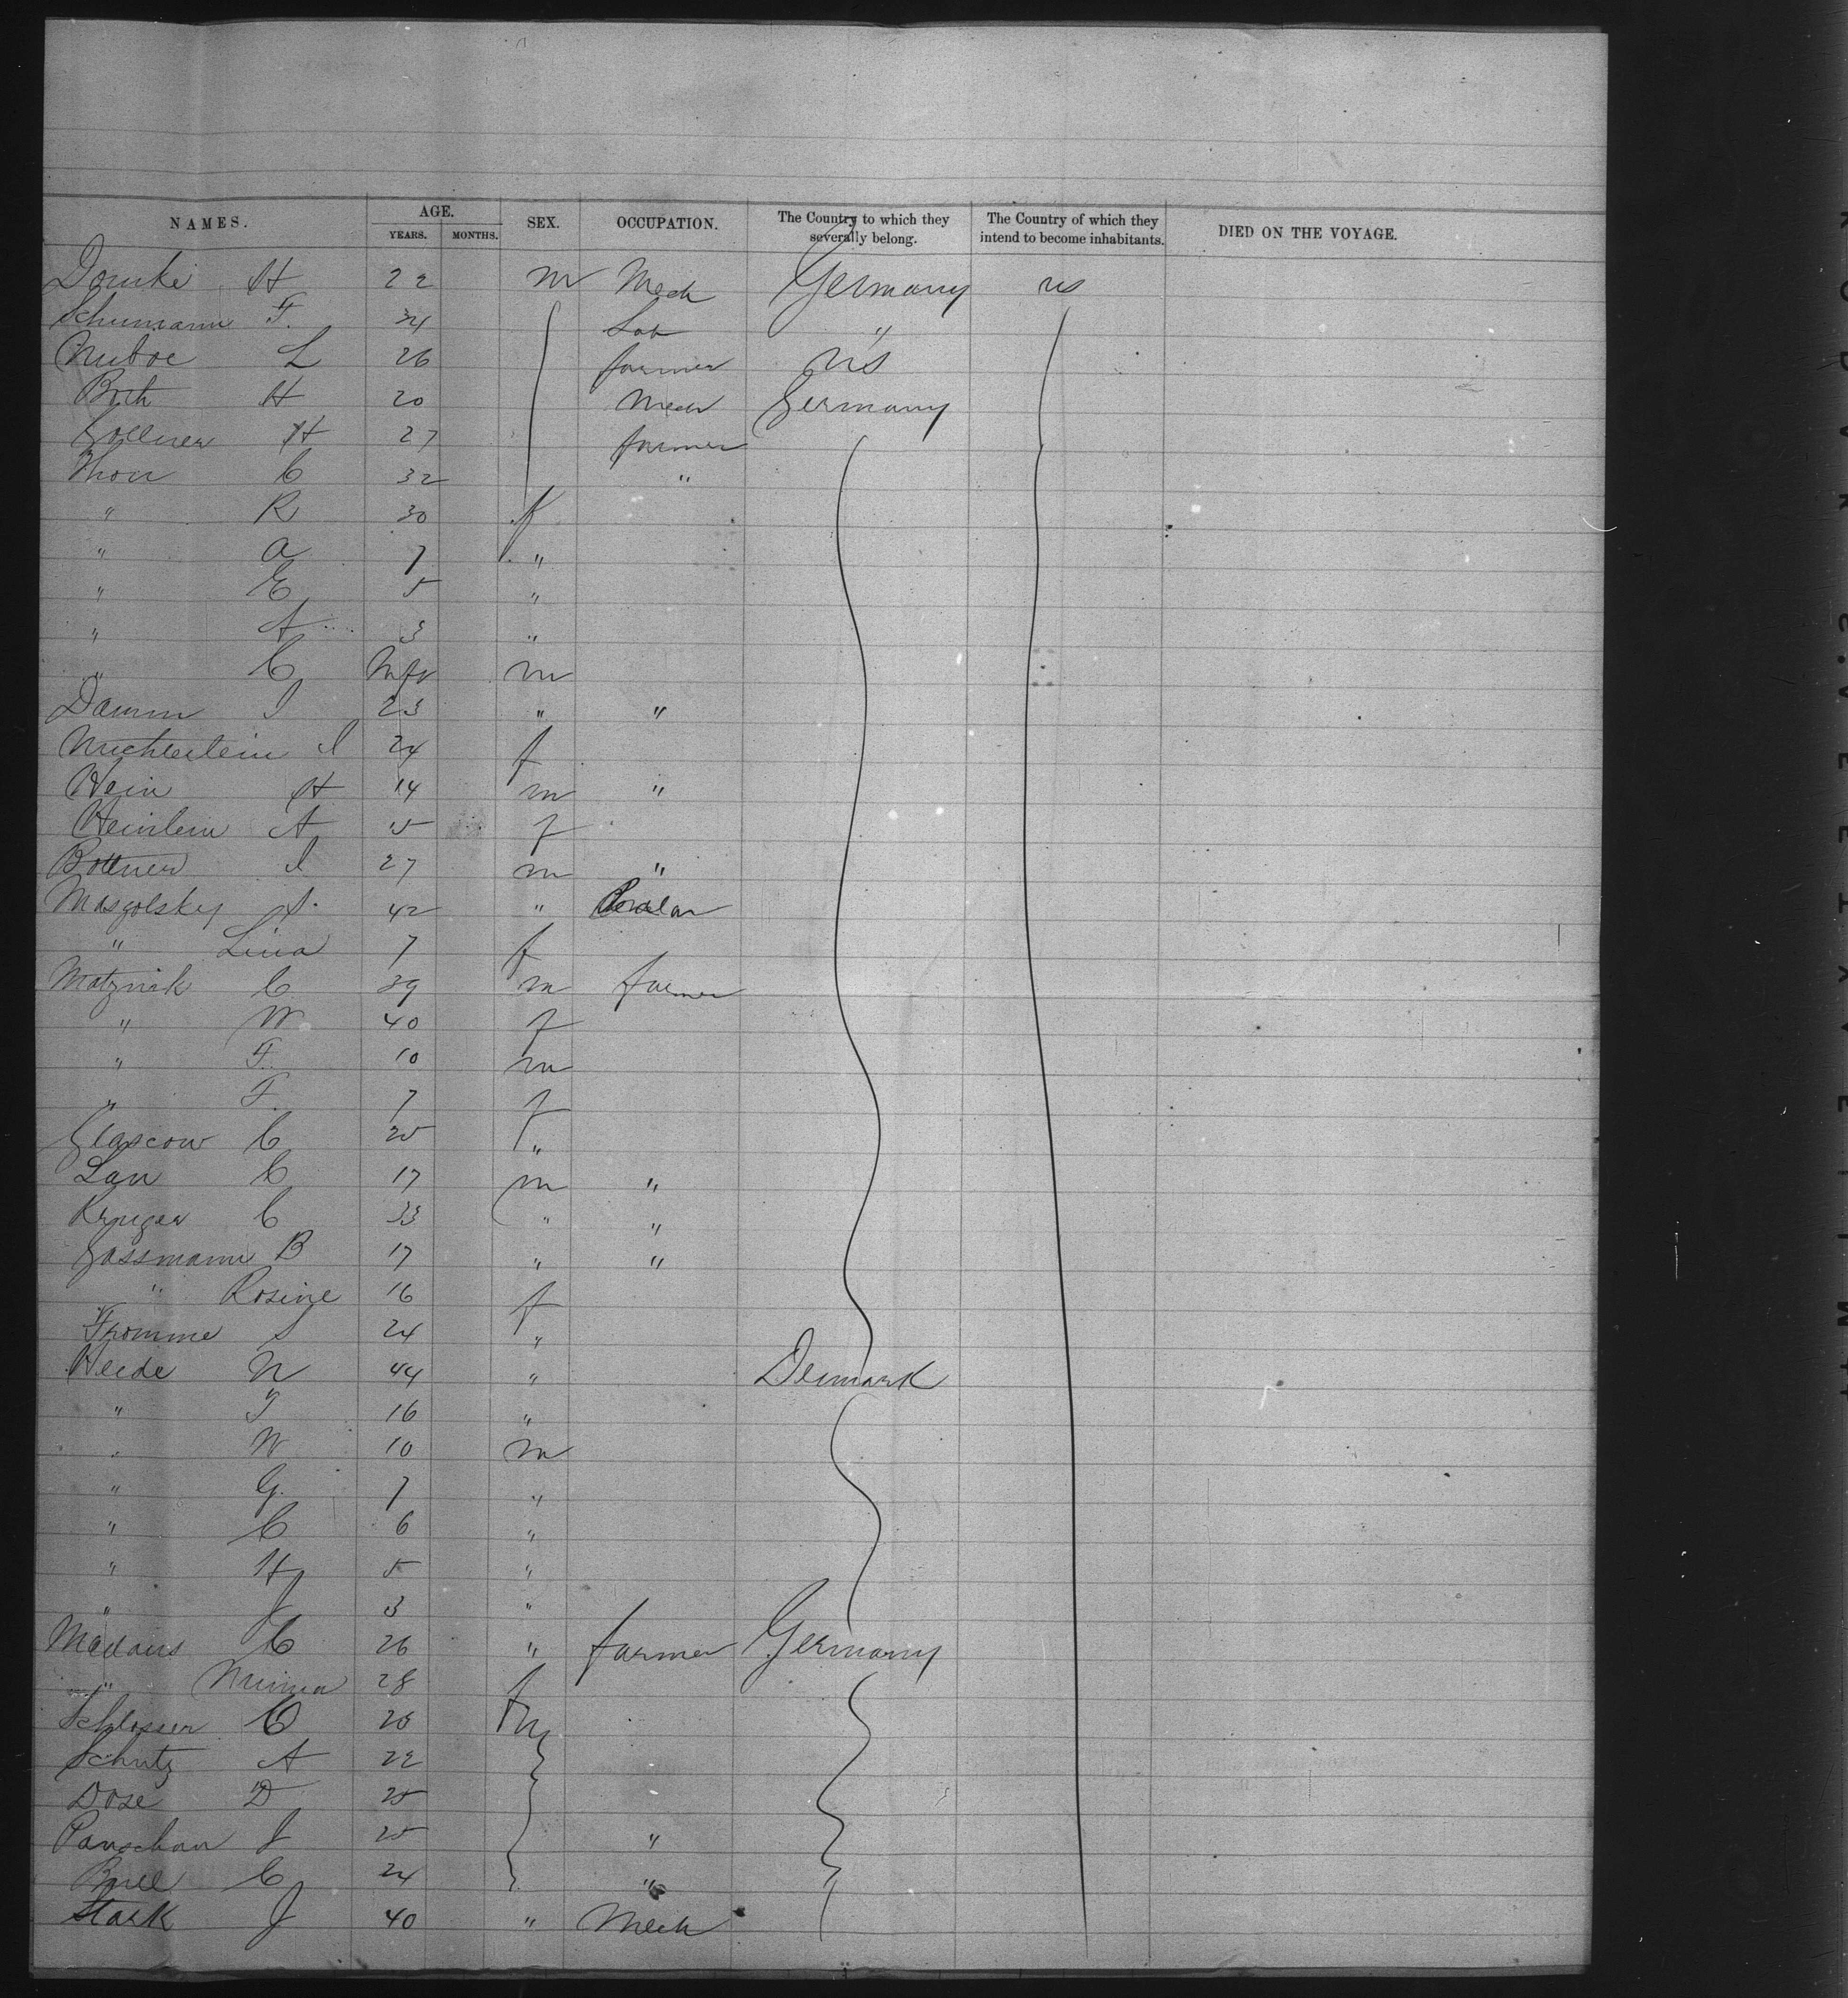 NAMES. AGE. YEARS. MONTHS. SEX. OCCUPATION. The Country to which they severally belong. The Country of which they intend to become inhabitants. DIED ON THE VOYAGE.
H 22 m Mech Germany us
Schumann F. 34 Lab "
L 26 farmer US
H 20 Mech Germany
Zollner H 27 farmer
Thon C 32 "
" R 30 f
" A 7 "
" E 5 "
" A 3 "
" C Inft m
Damm I 23 " "
I 24 f
Hein H 14 m "
Heinlein A 15 f
Bottner I 27 m "
Masgolsky S. 42 "
" Lina 7 f
Matznik C 39 m farmer
" W 40 f
" F. 10 m
" F. 7 f
Glascow C 25 "
Lau C 17 m "
Kruger C 33 " "
Gassmann B 17 " "
" Rosine 16 f
Fromme S 24 "
Heide N 44 " Denmark
" T 16 "
" W 10 m
" G. 7 "
" C 6 "
" H 5 "
" J 3 "
Madaus C 26 " farmer Germany
" Minna 28 f
Schlosser O 28 m
Schutz A 22
Dose D 25
Panschau J 25 "
Bull C 24 "
Stark J 40 " Mech